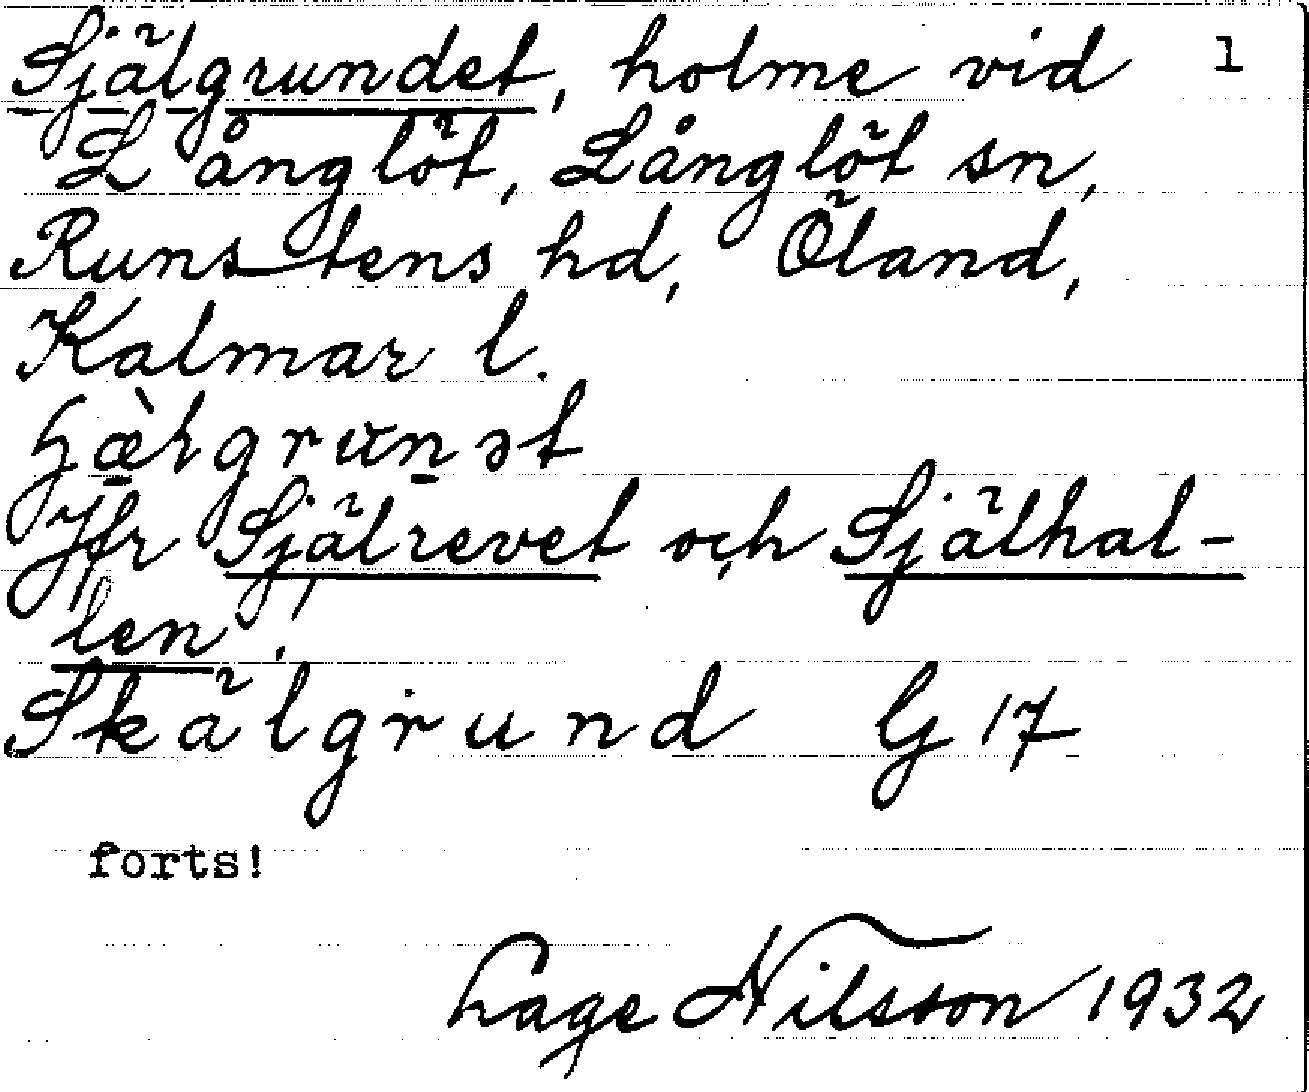 Själgrundet, holme vid 1
Långlöt, Långlöt sn,
Runstens hd, Öland,
Kalmar l.
ɧæ̀lgrunət
Jfr Själrevet och Själhal-
len!
Skälgrund G 17
forts!
Lage Nilsson 1932